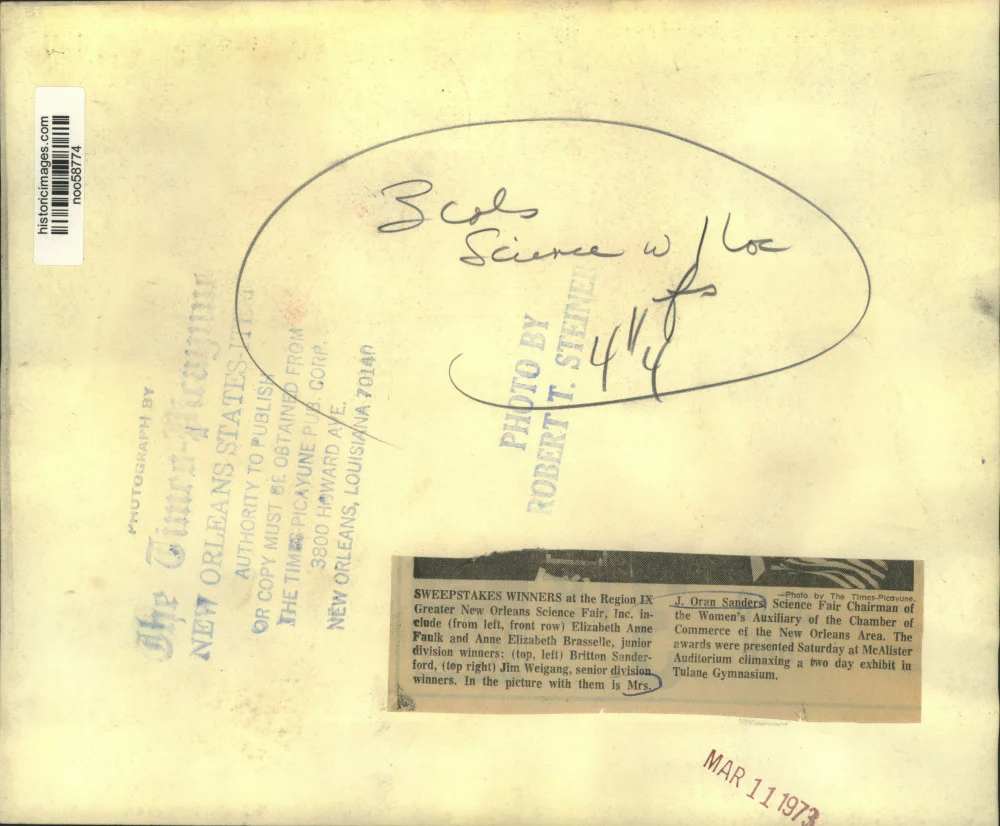 historicimages.com
noo58774
3 cols
Science w/ loc
4 4
PHOTOGRAPH BY
The Times-Picayune
NEW ORLEANS STATES-ITEM
AUTHORITY TO PUBLISH
OR COPY MUST BE OBTAINED FROM
THE TIMES-PICAYUNE PUB. CORP.
3800 HOWARD AVE.
NEW ORLEANS, LOUISIANA 70140
PHOTO BY
ROBERT T. STEINER
SWEEPSTAKES WINNERS at the Region IX
Greater New Orleans Science Fair, Inc. in-
clude (from left, front row) Elizabeth Anne
Faulk and Anne Elizabeth Brasselle, junior
division winners: (top, left) Britton Sander-
ford, (top right) Jim Weigang, senior division
winners. In the picture with them is Mrs.
—Photo by The Times-Picayune.
J. Oran Sanders, Science Fair Chairman of
the Women's Auxiliary of the Chamber of
Commerce of the New Orleans Area. The
awards were presented Saturday at McAlister
Auditorium climaxing a two day exhibit in
Tulane Gymnasium.
MAR 11 1973